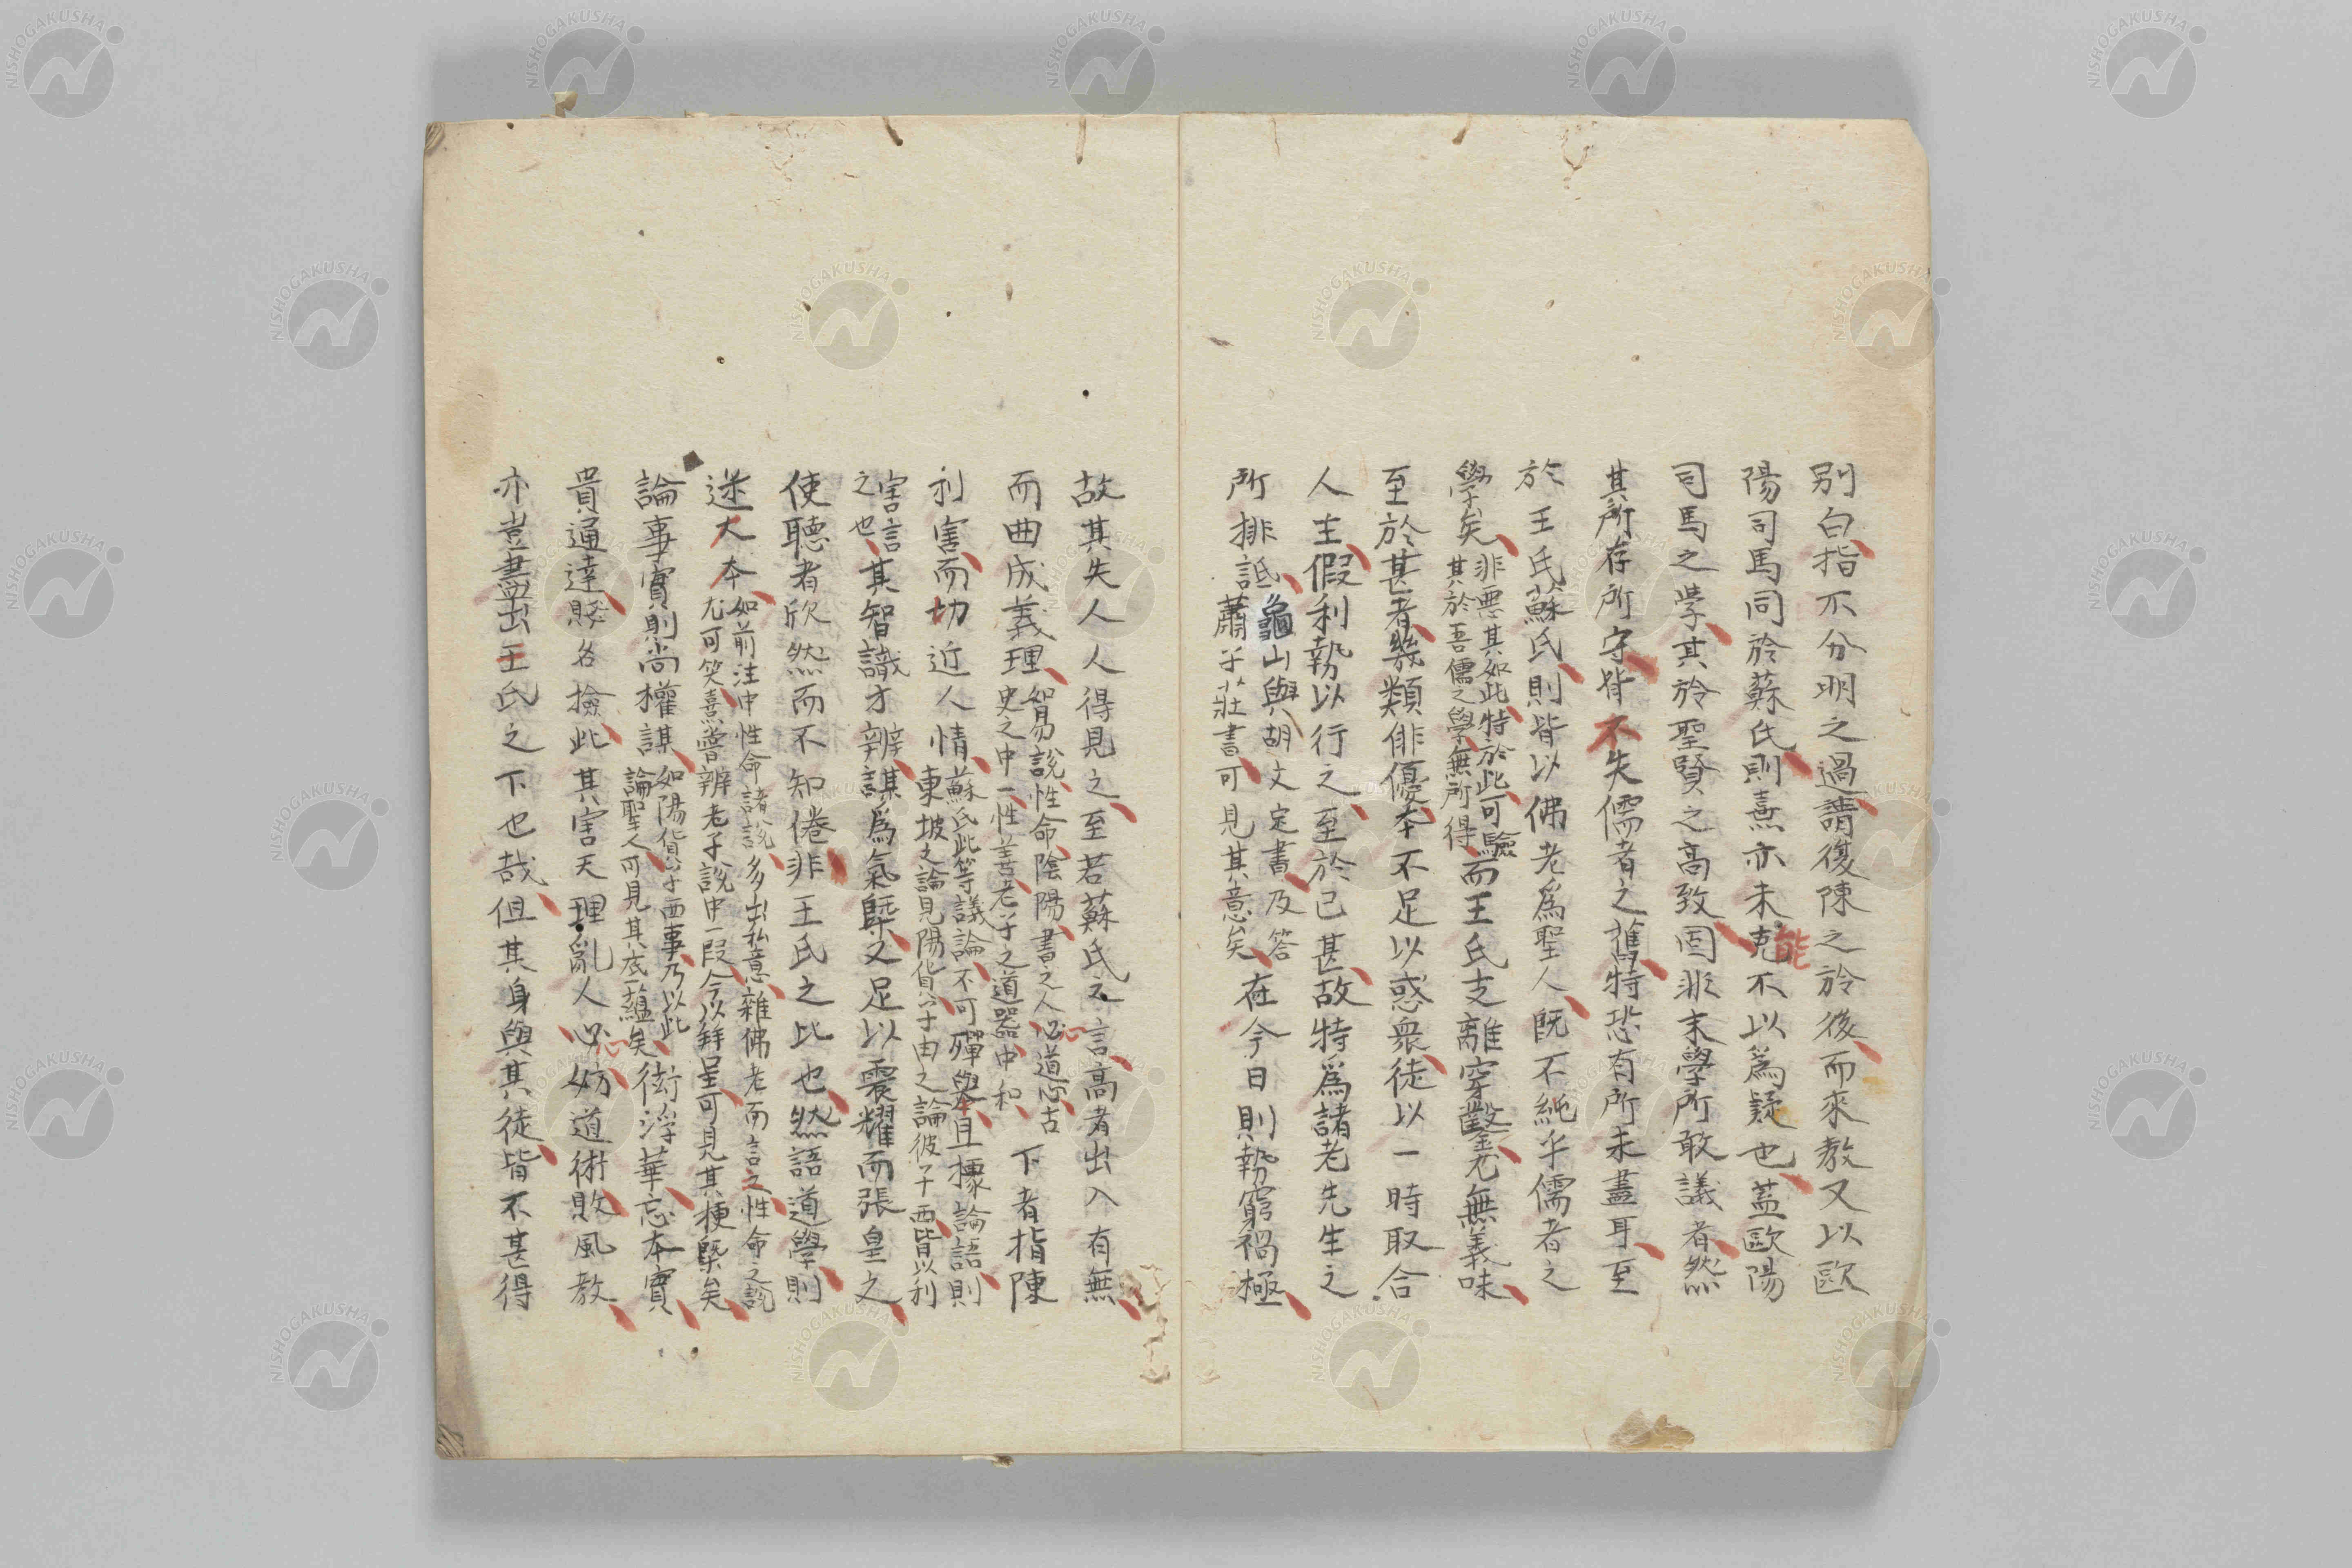 別白指不分明之過請復陳之於後而來教又以歐
陽司馬同於蘇氏則熹亦未能克不以為疑也蓋歐陽
司馬之學其於聖賢之高致固非末學所敢議者然
其所存所守皆不失儒者之舊特恐有所未盡耳至
於王氏蘇氏則皆以佛老為聖人既不純乎儒者之
學矣非惡其如此特於此可驗其於吾儒之學無所得而王氏支離穿鑿尤無義味
至於甚者幾類俳優本不足以惑衆徒以一時取合
人主假利勢以行之至於已甚故特爲諸老先生之
所排詆龜山與胡文定書及答蕭子莊書可見其意矣在今日則勢窮禍極
故其失人人得見之至若蘇氏之言高者出入有無
而曲成義理如易說性命陰陽書之人心道心古史之中一性善老子之道器中和下者指陳
利害而切近人情蘇氏此等議論不可殫舉且據論語則東坡之論見陽貨子由之論彼子西皆以利
害言之也其智識才辨謀爲氣槩又足以震耀而張皇之
使聽者欣然而不知倦非王氏之比也然語道學則
迷大本如前注中性命諸說多出私意雜佛老而言之性命之說尤可笑熹嘗辨老子說中一段今以拜呈可見其梗槩矣
論事實則尚權謀如陽貨子西事乃以此論聖人可見其底蘊矣衒浮華忘本實
貴通達賤名撿此其害天理亂人心心妨道術敗風教
亦豈盡出王氏之下也哉但其身與其徒皆不甚得
NISHOGAKUSHA